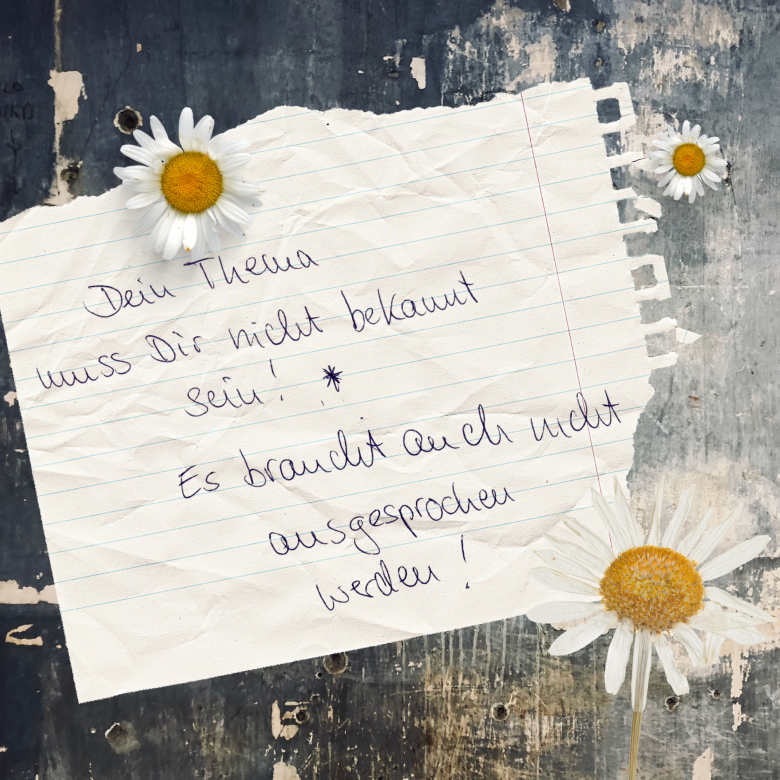 Dein Thema
muss Dir nicht bekannt
sein! *
Es braucht auch nicht
ausgesprochen
werden!